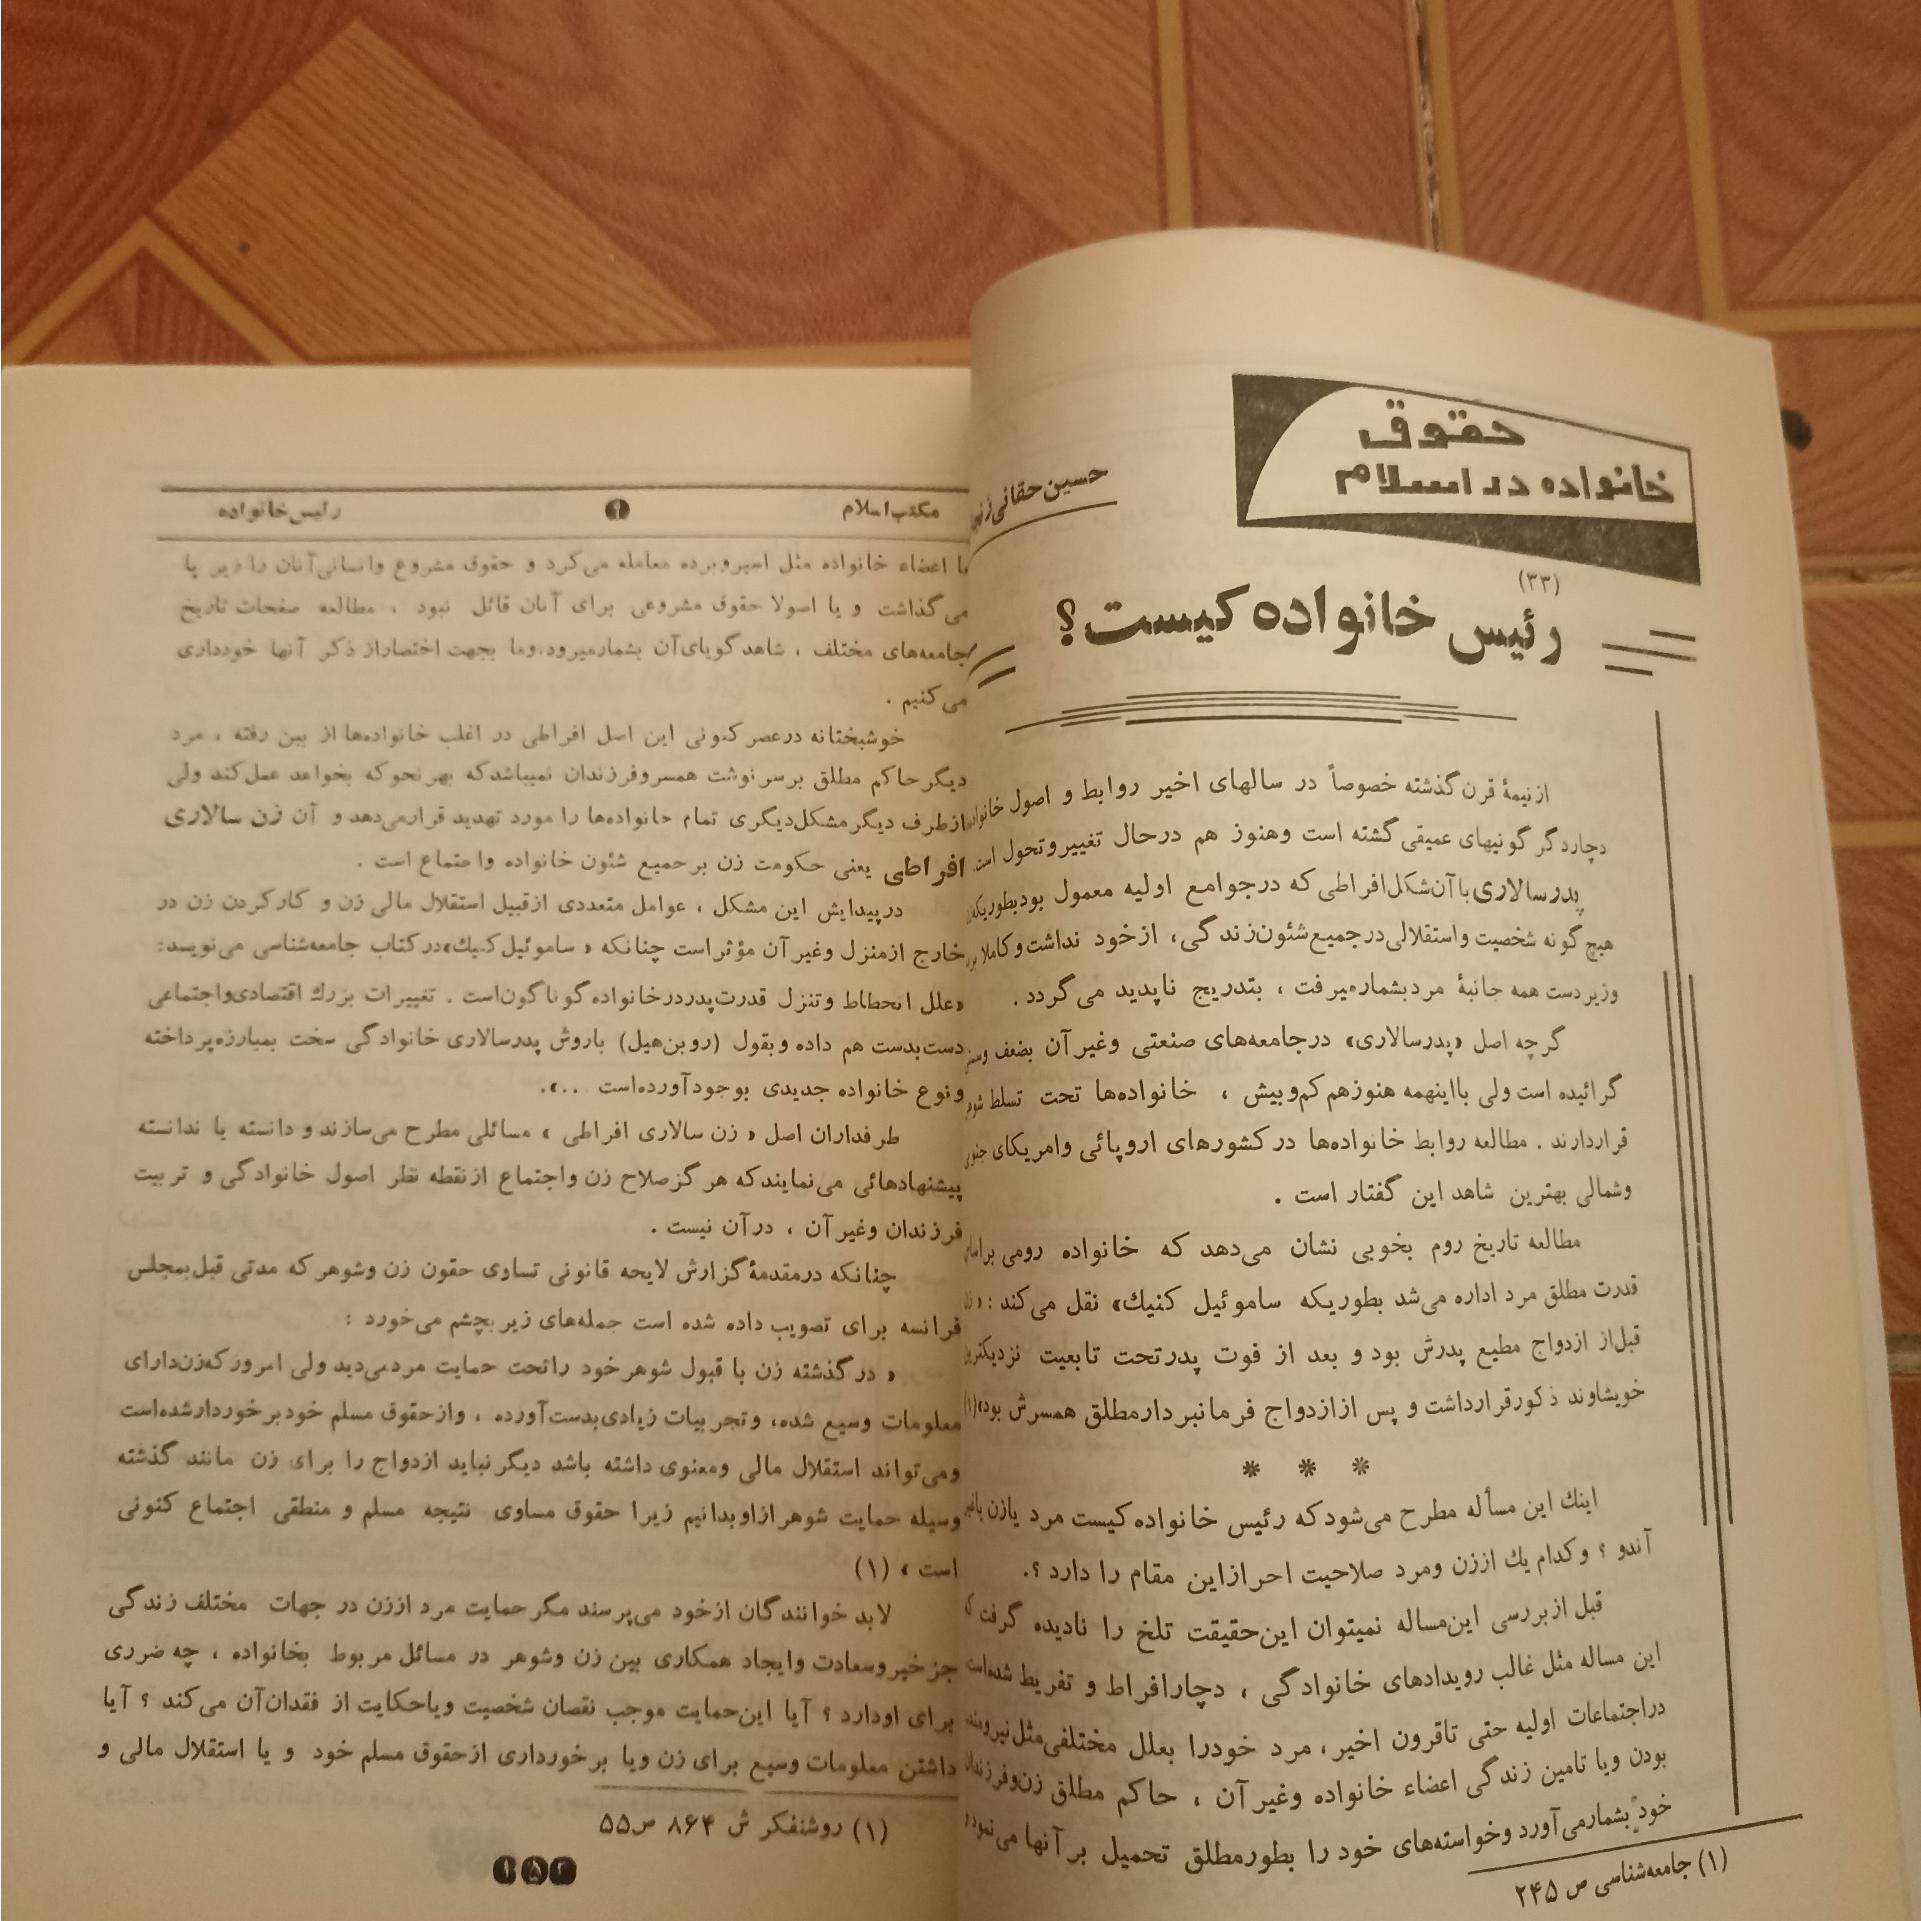 حقوق
خانواده در اسلام
حسین حقانی
(۳۳)
رئیس خانواده کیست؟
از نیمهٔ قرن گذشته خصوصاً در سالهای اخیر روابط و اصول
دچار دگرگونیهای عمیقی گشته است وهنوز هم درحال تغییر وتحول است.
پدرسالاری باآن‌شکل‌افراطی‌که درجوامع اولیه معمول بودبطوریکه
هیچ گونه شخصیت واستقلالی درجمیع شئون‌زندگی، ازخود نداشت وکاملا
وزیردست همه جانبهٔ مردبشمارمیرفت ، بتدریج ناپدید می‌گردد .
گرچه اصل «پدرسالاری» درجامعه‌های صنعتی وغیرآن بضعف
گرائیده است ولی بااینهمه هنوزهم کم‌وبیش ، خانواده‌ها تحت تسلط
قراردارند . مطالعه روابط خانواده‌ها درکشورهای اروپائی وامریکای
وشمالی بهترین شاهد این گفتار است .
مطالعه تاریخ روم بخوبی نشان می‌دهد که خانواده رومی
قدرت مطلق مرد اداره می‌شد بطوریکه ساموئیل کنیك» نقل می‌کند : «
قبل‌از ازدواج مطیع پدرش بود و بعد از فوت پدرتحت تابعیت
خویشاوند ذکورقرارداشت و پس ازازدواج فرمانبردارمطلق همسرش بود»(۱)
* * *
اینك این مسأله مطرح می‌شودکه رئیس خانواده‌کیست مرد یازن
آندو ؟ وکدام یك اززن ومرد صلاحیت احرازاین مقام را دارد ؟.
قبل ازبررسی این‌مساله نمیتوان این‌حقیقت تلخ را نادیده گرفت
این مساله مثل غالب رویدادهای خانوادگی ، دچارافراط و تفریط شده‌است
دراجتماعات اولیه حتی تاقرون اخیر، مرد خودرا بعلل مختلفی‌مثل
بودن ویا تامین زندگی اعضاء خانواده وغیرآن ، حاکم مطلق زن‌وفرزندان
خود بشمارمی‌آورد وخواسته‌های خود را بطورمطلق تحمیل برآنها می‌نمود
(۱) جامعه‌شناسی ص ۲۴۵
مکتب اسلام
رئیس خانواده
با اعضاء خانواده مثل اسیروبرده معامله می‌کرد و حقوق مشروع وانسانی‌آنان را زیر پا
می‌گذاشت و یا اصولا حقوق مشروعی برای آنان قائل نبود ، مطالعه صفحات تاریخ
جامعه‌های مختلف ، شاهد گویای‌آن بشمارمیرود،وما بجهت اختصاراز ذکر آنها خودداری
می‌کنیم .
خوشبختانه درعصرکنونی این اصل افراطی در اغلب خانواده‌ها از بین رفته ، مرد
دیگرحاکم مطلق برسرنوشت همسروفرزندان نمیباشدکه بهرنحوکه بخواهد عمل‌کند ولی
ازطرف دیگرمشکل‌دیگری تمام خانواده‌ها را مورد تهدید قرارمی‌دهد و آن زن سالاری
افراطی یعنی حکومت زن برجمیع شئون خانواده واجتماع است .
درپیدایش این مشکل ، عوامل متعددی ازقبیل استقلال مالی زن و کارکردن زن در
خارج ازمنزل وغیرآن مؤثراست چنانکه « ساموئیل‌کنیك»درکتاب جامعه‌شناسی می‌نویسد:
«علل انحطاط وتنزل قدرت‌پدردرخانواده گوناگون‌است . تغییرات بزرك اقتصادی‌واجتماعی
دست‌بدست هم داده وبقول (روبن‌هیل) باروش پدرسالاری خانوادگی سخت بمبارزه‌پرداخته
ونوع خانواده جدیدی بوجودآورده‌است ...».
طرفداران اصل « زن سالاری افراطی » مسائلی مطرح می‌سازند و دانسته یا ندانسته
پیشنهادهائی می‌نمایندکه هرگزصلاح زن واجتماع ازنقطه نظر اصول خانوادگی و تربیت
فرزندان وغیرآن ، درآن نیست .
چنانکه درمقدمهٔ‌گزارش لایحه قانونی تساوی حقون زن وشوهرکه مدتی قبل‌بمجلس
فرانسه برای تصویب داده شده است جمله‌های زیربچشم می‌خورد :
« درگذشته زن با قبول شوهرخود راتحت حمایت مردمی‌دید ولی امروزکه‌زن‌دارای
معلومات وسیع شده، وتجربیات زیادی‌بدست‌آورده ، وازحقوق مسلم خودبرخوردارشده‌است
ومی‌تواند استقلال مالی ومعنوی داشته باشد دیگرنباید ازدواج را برای زن مانند گذشته
وسیله حمایت شوهرازاوبدانیم زیرا حقوق مساوی نتیجه مسلم و منطقی اجتماع کنونی
است » (۱)
لابد خوانندگان ازخود می‌پرسند مگرحمایت مرد اززن در جهات مختلف زندگی
جزخیروسعادت وایجاد همکاری بین زن وشوهر در مسائل مربوط بخانواده ، چه ضرری
برای اودارد ؟ آیا این‌حمایت موجب نقصان شخصیت ویاحکایت از فقدان‌آن می‌کند ؟ آیا
داشتن معلومات وسیع برای زن ویا برخورداری ازحقوق مسلم خود و یا استقلال مالی و
(۱) روشنفکر ش ۸۶۴ ص۵۵